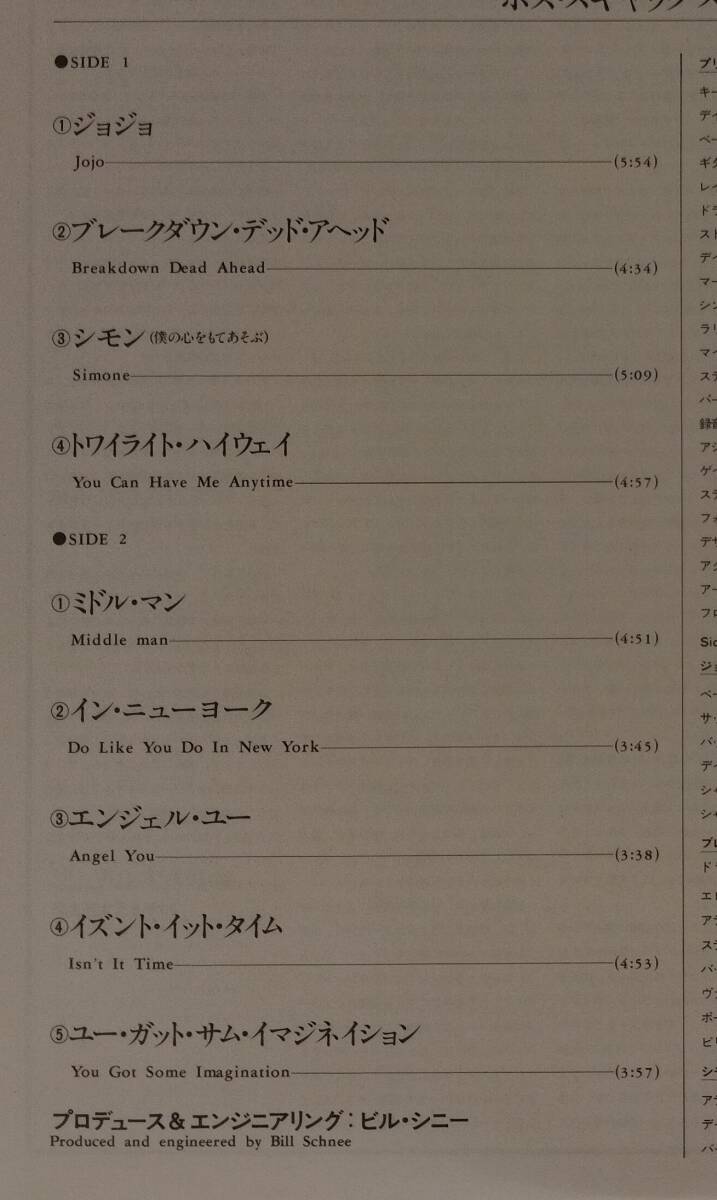 ●SIDE 1
①ジョジョ
Jojo (5:54)
②ブレークダウン・デッド・アヘッド
Breakdown Dead Ahead (4:34)
③シモン(僕の心をもてあそぶ)
Simone (5:09)
④トワイライト・ハイウェイ
You Can Have Me Anytime (4:57)
●SIDE 2
①ミドル・マン
Middle man (4:51)
②イン・ニューヨーク
Do Like You Do In New York (3:45)
③エンジェル・ユー
Angel You (3:38)
④イズント・イット・タイム
Isn't It Time (4:53)
⑤ユー・ガット・サム・イマジネイション
You Got Some Imagination (3:57)
プロデュース&エンジニアリング:ビル・シニー
Produced and engineered by Bill Schnee